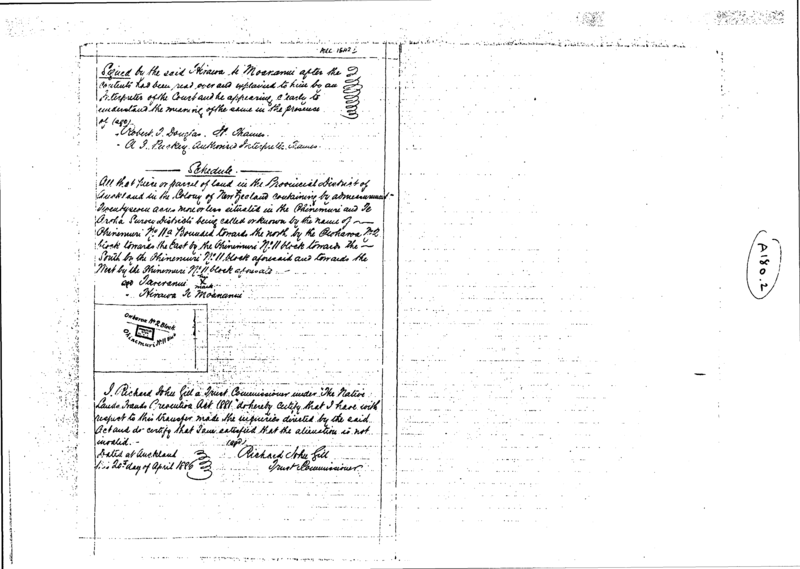 Signed by the said Hirawa Te Moananui after the
contents had been read over and explained to him by an
Interpreter of the Court and he appearing clearly to
understand the meaning of the same in the presence
of (sgd)
Robert J. Douglas. Thames.
A J. Puckey Authorised Interpreter Thames.
Schedule.
All that piece or parcel of land in the Provincial District of
Auckland in the Colony of New Zealand containing by admeasurement
Twenty seven acres more or less situated in the Ohinemuri and Te
Aroha Survey Districts being called or known by the name of
Ohinemuri No 11a Bounded towards the north by the No 2
block towards the East by the Ohinemuri No 11 block towards the
South by the Ohinemuri No 11 block aforesaid and towards the
West by the Ohinemuri No 11 block aforesaid
sgd X
mark
Hirawa Te Moananui
No 2 Block
Ohinemuri No 11
I, Richard John Gill a Trust Commissioner under "The Native
Lands Frauds Prevention Act 1881" do hereby certify that I have with
respect to this transfer made the inquiries directed by the said
Act and do certify that I am satisfied that the alienation is not
invalid. -
(sgd)
Dated at Auckland Richard John Gill
this 20th day of April 1886 Trust Commissioner
A180.2